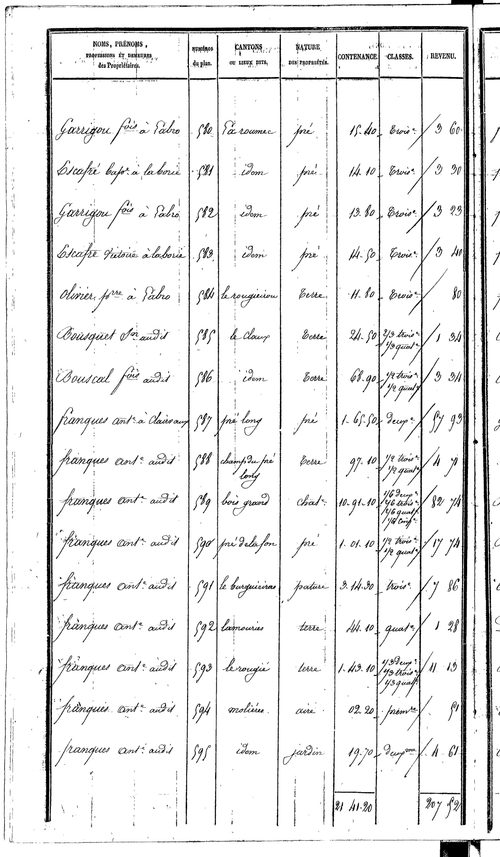 NOMS, PRÉNOMS, PROFESSIONS ET DEMEURES des Propriétaires. NUMÉROS du plan. CANTONS OU LIEUX DITS. NATURE DES PROPRIÉTÉS. CONTENANCE. CLASSES. REVENU.
Garrigou fois à Pabro 580 La roumec pré 15.40 trois.e 3 60
Escafré bap.te à laborie 581 idem pré 14.10 trois.e 3 30
Garrigou fois à Pabro 582 idem pré 13.80 trois.e 3 23
Escafré Victoire à laborie 583 idem pré 14.50 trois.e 3 40
Olivier pierre à Pabro 584 le rougueirou terre 11.80 trois.e 80
Bousquet audit 585 le Claux terre 24.50 2/3 trois.e 1/3 quat.e 1 34
Bouscal fois audit 586 idem terre 68.90 1/2 trois.e 1/2 quat.e 3 34
franques ant.e à Clairvaux 587 pré long pré 1-65.50 deux.e 57 93
franques ant.e audit 588 champ du pré long terre 97.10 1/2 trois.e 1/2 quat.e 4 71
franques ant.e audit 589 bois grand chat.e 10.91.10 1/6 deux.e 1/6 trois.e 1/6 quat.e 82 74
franques ant.e audit 590 pré de la fon pré 1.01.10 1/2 trois.e 1/2 quat.e 17 74
franques ant.e audit 591 le burguieiras pature 3.14.30 trois.e 7 86
franques ant.e audit 592 lamouries terre 44.10 quat.e 1 28
franques ant.e audit 593 le rougié terre 1.43.10 1/3 deux.e 1/3 trois.e 1/3 quat.e 11 13
franques ant.e audit 594 molière aire 02.20 prem.re 51
franques ant.e audit 595 idem jardin 19.70 deux.me 4 61
21 41.20 207 52